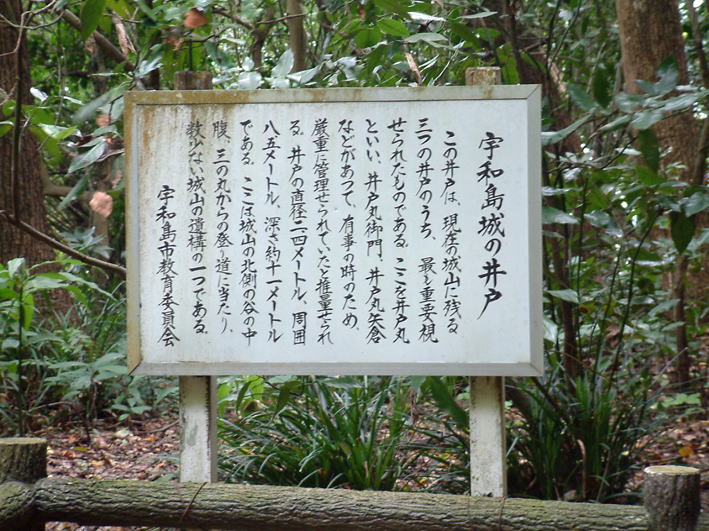 宇和島城の井戸
この井戸は、現在の城山に残る
三つの井戸のうち、最も重要視
せられたものである。ここを井戸丸
といい、井戸丸御門、井戸丸矢倉
などがあつて、有事の時のため、
厳重に管理せられていたと推量せられ
る。井戸の直径二・四メートル、周囲
八・五メートル、深さ約十一メートル
である。ここは城山の北側の谷の中
腹、三の丸からの登り道に当たり、
数少ない城山の遺構の一つである。
宇和島市教育委員会